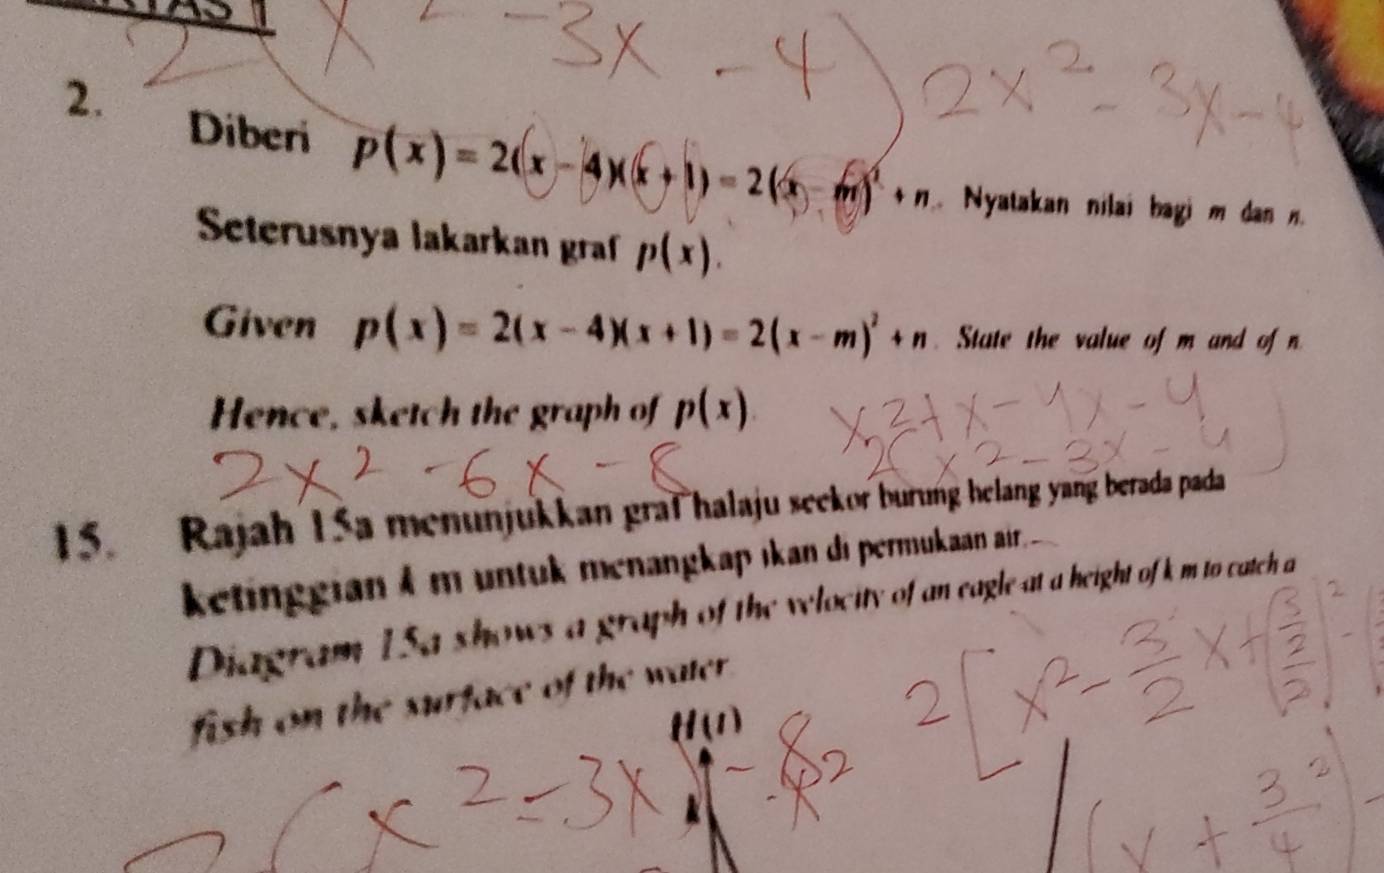 2(x² - 3x - 4)
2x² - 3x - 4
2.
Diberi p(x) = 2(x - 4)(x + 1) = 2(x - m)² + n. Nyatakan nilai bagi m dan n.
Seterusnya lakarkan graf p(x).
Given p(x) = 2(x - 4)(x + 1) = 2(x - m)² + n. State the value of m and of n.
Hence, sketch the graph of p(x).
x² + x - 4x - 4
2(x² - 3x - 4)
2x² - 6x - 8
15. Rajah 15a menunjukkan graf halaju seekor burung helang yang berada pada
ketinggian k m untuk menangkap ikan di permukaan air.
Diagram 15a shows a graph of the velocity of an eagle at a height of k m to catch a
fish on the surface of the water.
H(t)
2[x² - 3/2 x + (3/2/2)² -
(x² - 3x) - 8
(x + 3/4)² -